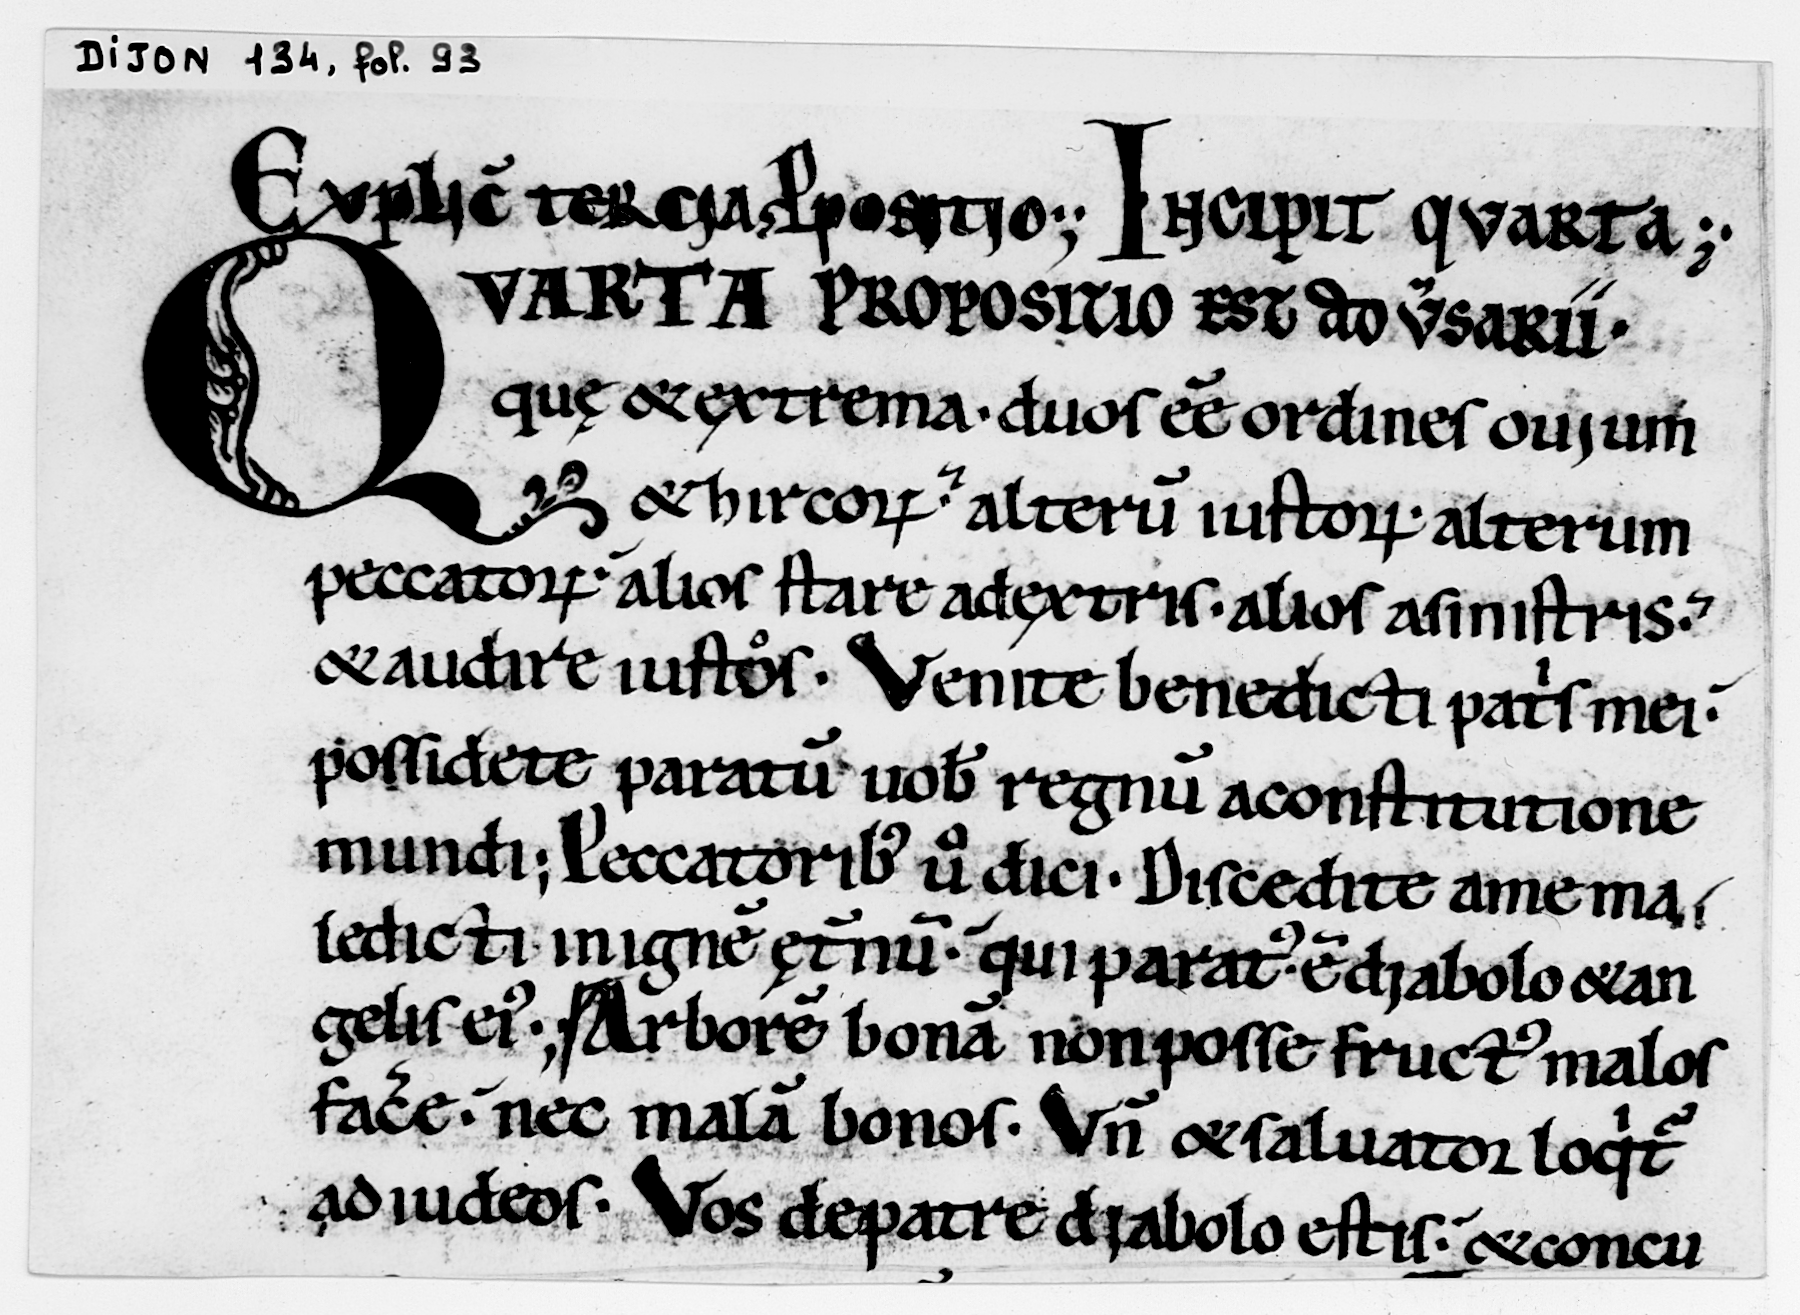 DiJON 134, fol. 93
Explic̄ tercia Ppositio:; Incipit qVarta;
QVARTA PROPOSITIO EST adv̄sarii.
quę &ęxtrema. duos eē̄ ordines ouium
& hircoꝝ. alterū iustoꝝ. alterum
peccatoꝝ. alios stare adęxtris. alios asinistris.
&audire iustoͦs. Venite benedicti patͥs mei.
possidete paratū uob̄ regnū aconstitutione
mundi; Peccatorib᾿ uͦ dici. Discedite amema
ledicti inignē ęt̄nū. qui parat᾿. ē diabolo &an
gelis ei᾿.; Arborē bonā nonposse fruct᾿ malos
fac̄e. nec malā bonos. Vn̄ &saluator loqͥt̄
ad iudeos. Vos depatre diabolo estis. &concu